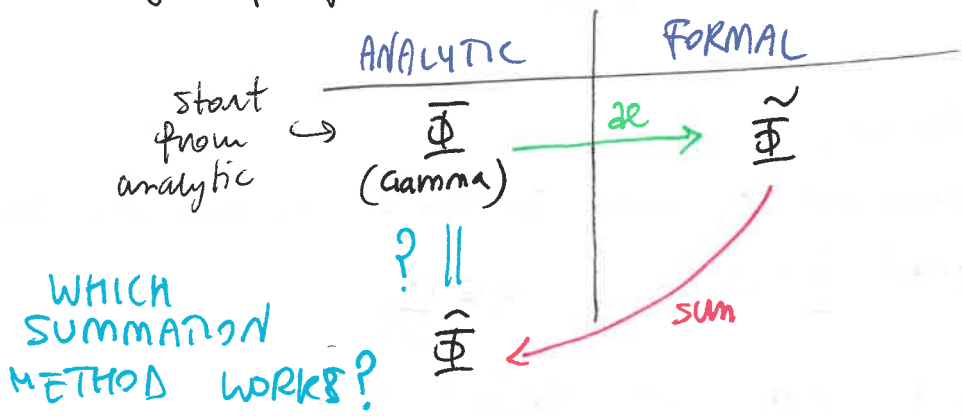 ANALYTIC
FORMAL
start
from
analytic
↪
Φ̅
(Gamma)
æ
Φ̃
? ||
Φ̂
sum
WHICH
SUMMATION
METHOD WORKS?